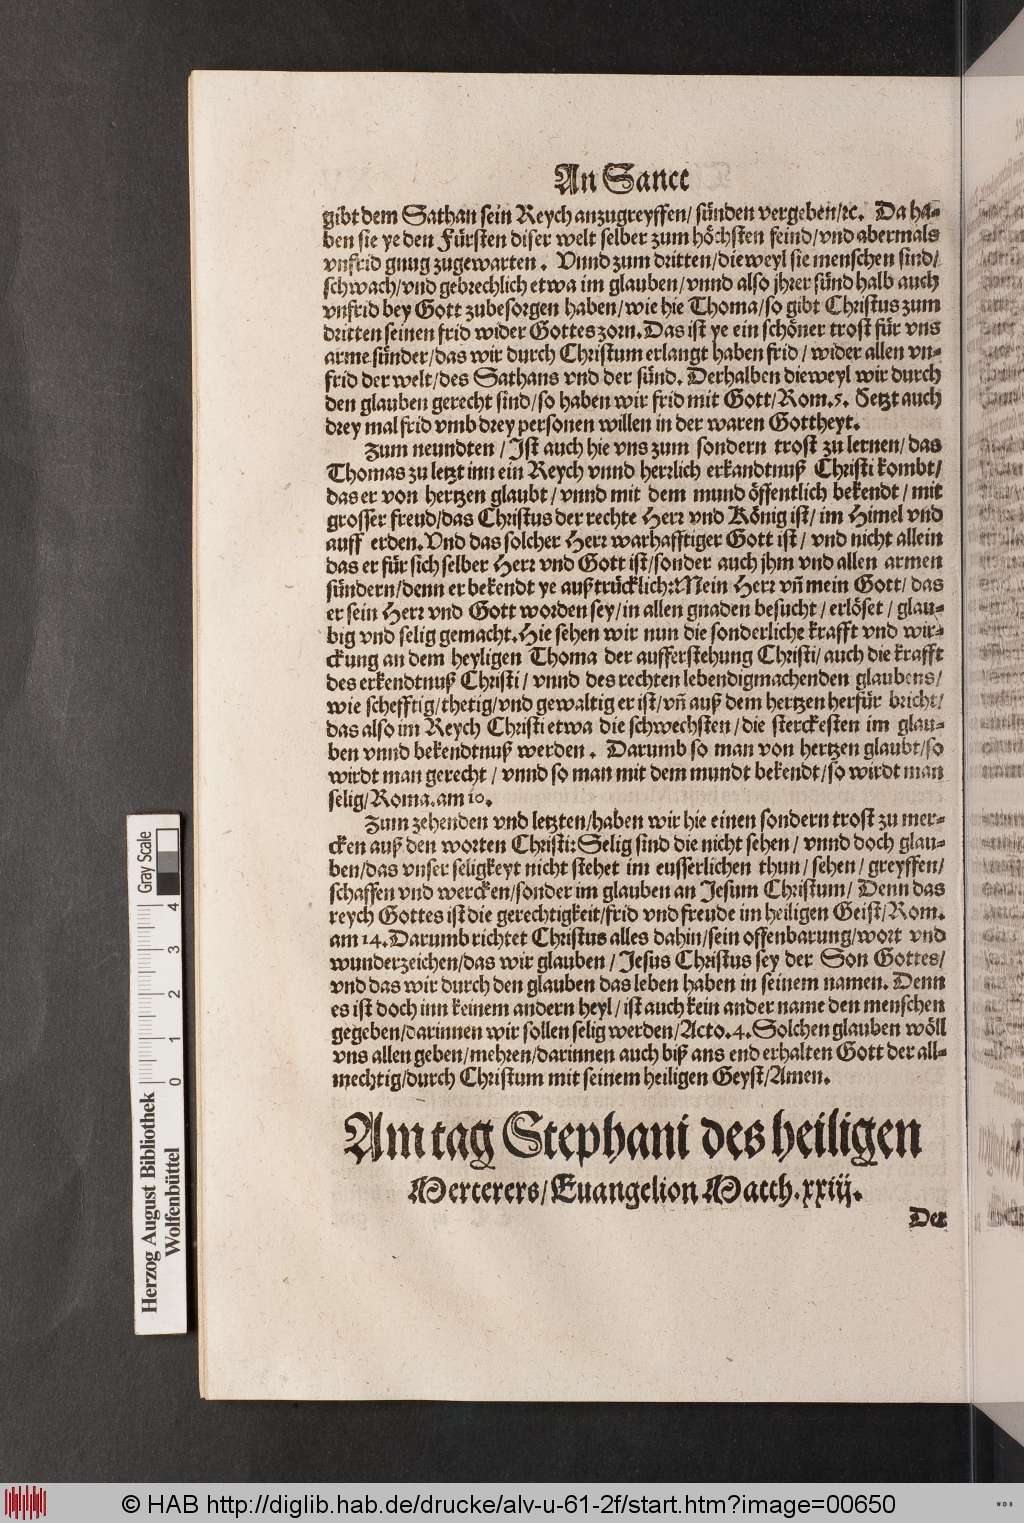 An Sanct
gibt dem Sathan sein Reych anzugreyffen/ sünden vergeben/ꝛc. Da ha-
ben sie ye den Fürsten diser welt selber zum höchsten feind/vnd abermals
vnfrid gnug zugewarten. Vnnd zum dritten/dieweyl sie menschen sind/
schwach/vnd gebrechlich etwa im glauben/vnnd also jhrer sünd halb auch
vnfrid bey Gott zubesorgen haben/wie hie Thoma/so gibt Christus zum
dritten seinen frid wider Gottes zorn.Das ist ye ein schöner trost für vns
arme sünder/das wir durch Christum erlangt haben frid/ wider allen vn-
frid der welt/des Sathans vnd der sünd. Derhalben dieweyl wir durch
den glauben gerecht sind/so haben wir frid mit Gott/Rom.5. Setzt auch
drey mal frid vmb drey personen willen in der waren Gottheyt.
Zum neundten/ Ist auch hie vns zum sondern trost zu lernen/das
Thomas zu letzt inn ein Reych vnnd herrlich erkandtnuß Christi kombt/
das er von hertzen glaubt/vnnd mit dem mund öffentlich bekendt/mit
grosser freud/das Christus der rechte Herr vnd König ist/im Himel vnd
auff erden.Vnd das solcher Herr warhafftiger Gott ist/ vnd nicht allein
das er für sich selber Herr vnd Gott ist/sonder auch jhm vnd allen armen
sündern/denn er bekendt ye außtrücklich:Mein Herr vñ mein Gott/das
er sein Herr vnd Gott worden sey/in allen gnaden besucht/erlöset/glau-
big vnd selig gemacht.Hie sehen wir nun die sonderliche krafft vnd wir-
ckung an dem heyligen Thoma der aufferstehung Christi/auch die krafft
des erkendtnuß Christi/vnnd des rechten lebendigmachenden glaubens/
wie schefftig/thetig/vnd gewaltig er ist/vñ auß dem hertzen herfür bricht/
das also im Reych Christi etwa die schwechsten/die sterckesten im glau-
ben vnnd bekendtnuß werden. Darumb so man von hertzen glaubt/so
wirdt man gerecht/vnnd so man mit dem mundt bekendt/so wirdt man
selig/Roma.am 10.
Zum zehenden vnd letzten/haben wir hie einen sondern trost zu mer-
cken auß den worten Christi:Selig sind die nicht sehen/vnnd doch glau-
ben/das vnser seligkeyt nicht stehet im eusserlichen thun/sehen/greyffen/
schaffen vnd wercken/sonder im glauben an Jesum Christum/Denn das
reych Gottes ist die gerechtigkeit/frid vnd freude im heiligen Geist/Rom.
am 14.Darumb richtet Christus alles dahin/sein offenbarung/wort vnd
wunderzeichen/das wir glauben/Jesus Christus sey der Son Gottes/
vnd das wir durch den glauben das leben haben in seinem namen. Denn
es ist doch inn keinem andern heyl/ist auch kein ander name den menschen
gegeben/darinnen wir sollen selig werden/Acto.4.Solchen glauben wöll
vns allen geben/mehren/darinnen auch biß ans end erhalten Gott der all-
mechtig/durch Christum mit seinem heiligen Geyst/Amen.
Am tag Stephani des heiligen
Merterers/Euangelion Matth.xxiij.
Der
Gray Scale
0 1 2 3 4
Herzog August Bibliothek
Wolfenbüttel
© HAB http://diglib.hab.de/drucke/alv-u-61-2f/start.htm?image=00650